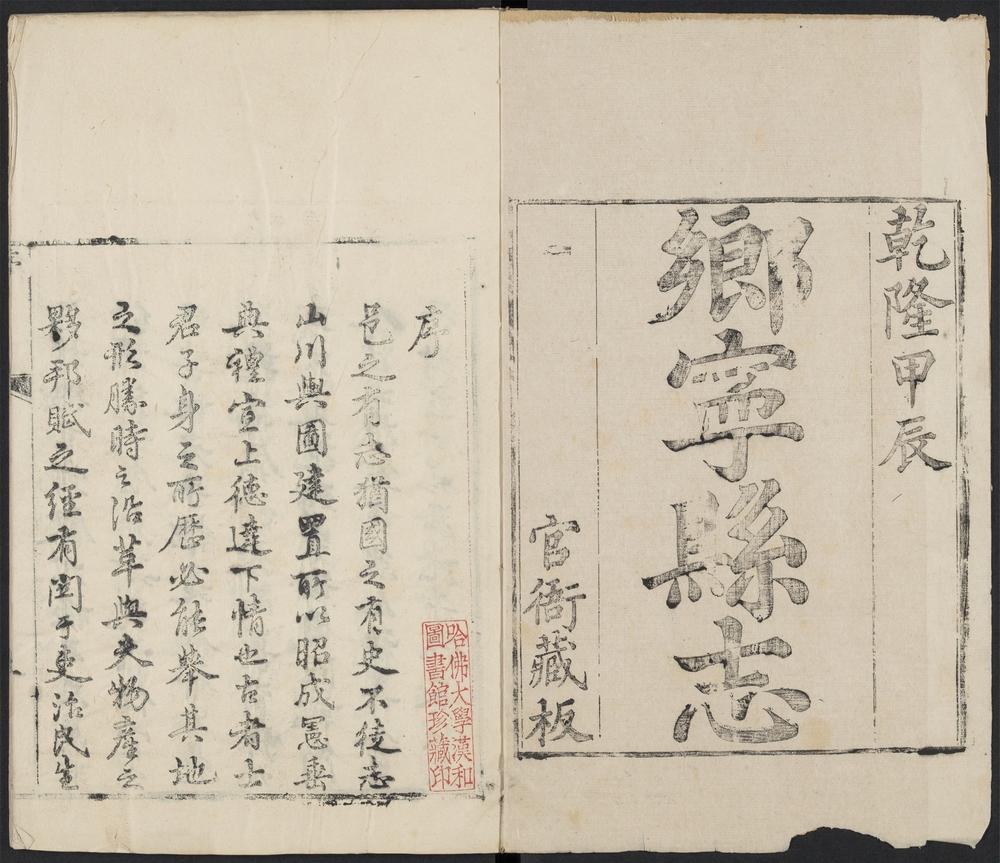 乾隆甲辰
鄉寧縣志
官衙藏板
序
邑之有志猶國之有史不徒志
山川輿圖建置所以昭成憲垂
典禮宣上德達下情也古者士
君子身之所歷必能舉其地
之形勝時之沿革與夫物產之
夥邦賦之經有關于吏治民生
哈佛大學漢和
圖書館珍藏印